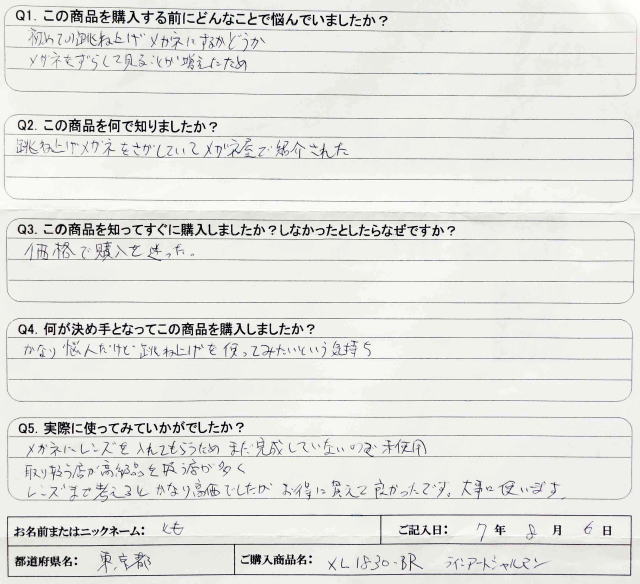 Q1. この商品を購入する前にどんなことで悩んでいましたか？
初めての跳ね上げメガネにするかどうか
メガネをずらして見ることが増えたため
Q2. この商品を何で知りましたか？
跳ね上げメガネをさがしていてメガネ屋で紹介された
Q3. この商品を知ってすぐに購入しましたか？しなかったとしたらなぜですか？
価格で購入を迷った。
Q4. 何が決め手となってこの商品を購入しましたか？
かなり悩んだけど跳ね上げを使ってみたいという気持ち
Q5. 実際に使ってみていかがでしたか？
メガネにレンズを入れてもらうためまだ完成していないので未使用
取り扱う店が高級品を扱う店が多く
レンズまで考えるとかなり高価でしたがお得に買えて良かったです。大事に使います。
お名前またはニックネーム： ご記入日： 7 年 8 月 6 日
都道府県名： 東京都 ご購入商品名： XL1830-BR ラインアートシャルマン